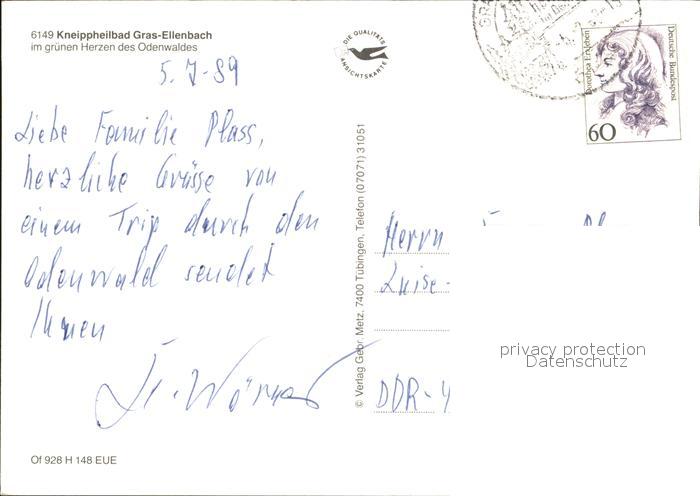 6149 Kneippheilbad Gras-Ellenbach
im grünen Herzen des Odenwaldes
DIE QUALITÄTS
ANSICHTSKARTE
Dorothea Erxleben
Deutsche Bundespost
60
5. 7. 89
Liebe Familie Plass,
herzliche Grüsse von
einem Trip durch den
Odenwald sendet
Ihnen
© Verlag Gebr. Metz, 7400 Tübingen, Telefon (07071) 31051
Herrn
Luise-
DDR-4
privacy protection
Datenschutz
Of 928 H 148 EUE